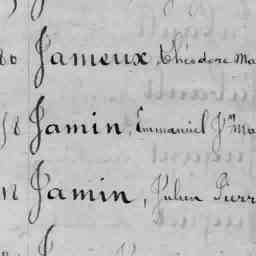 Jameux, Théodore Ma
58 Jamin, Emmanuel Jn Ma
Jamin, Julien Pierr